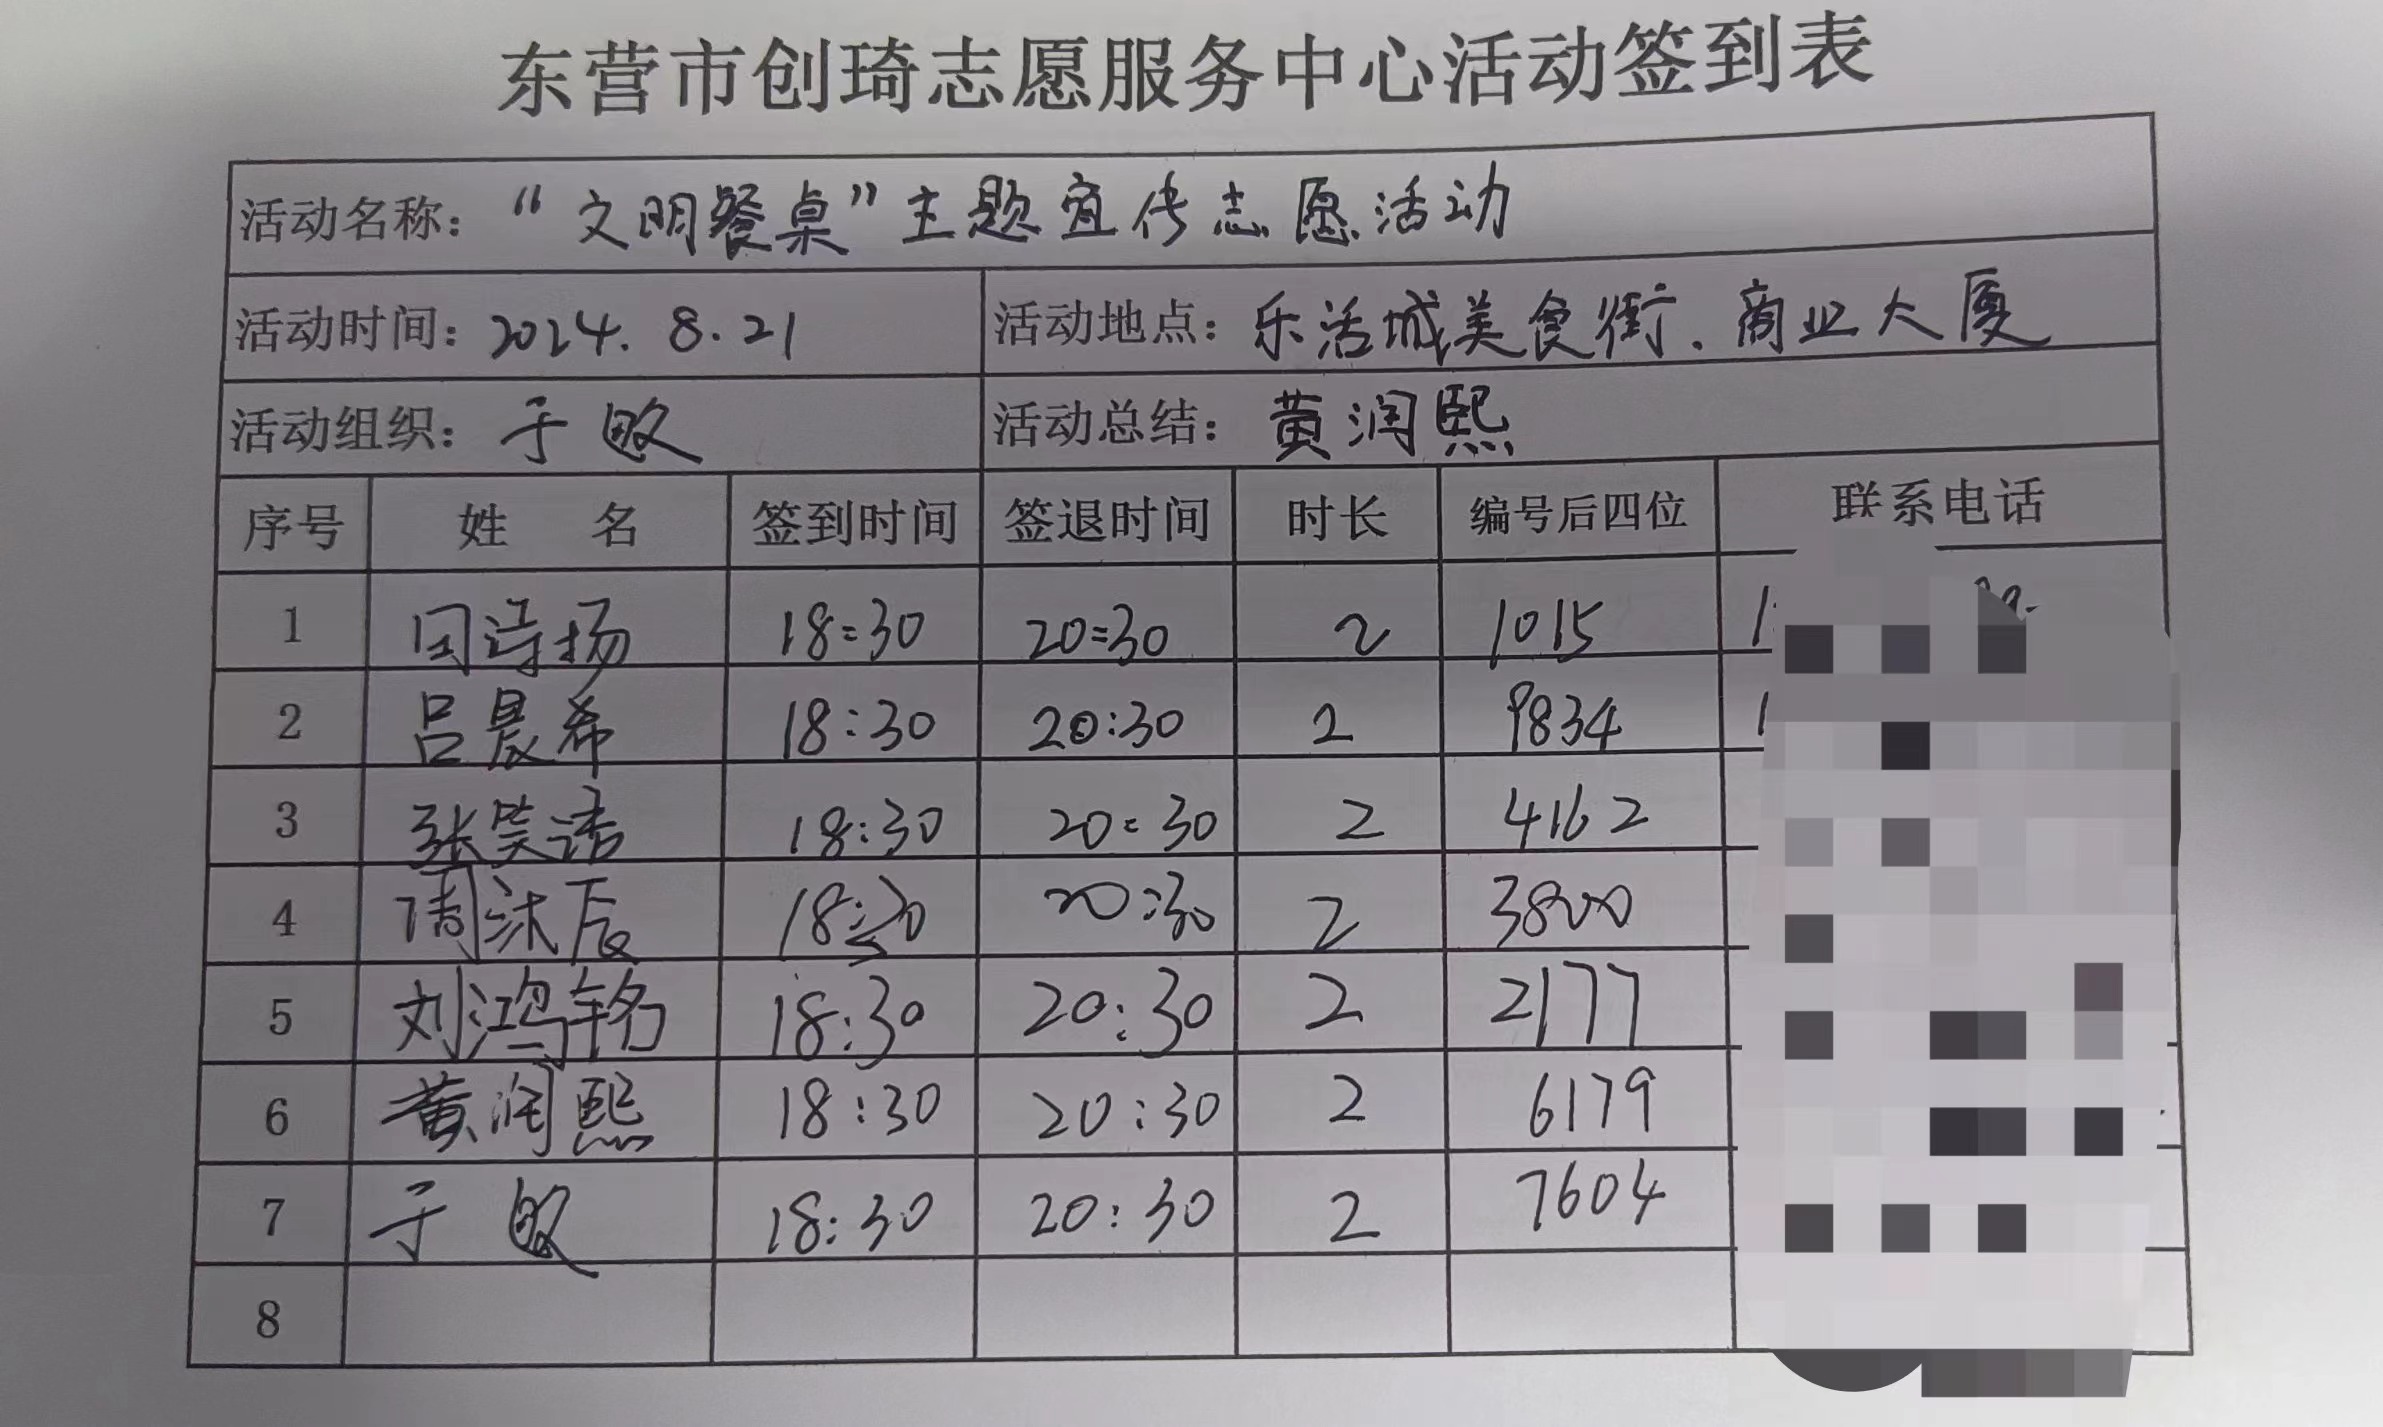 东营市创琦志愿服务中心活动签到表
活动名称：“文明餐桌”主题宣传志愿活动
活动时间：2024.8.21 活动地点：乐活城美食街、商业大厦
活动组织：于敏 活动总结：黄润熙
序号 姓 名 签到时间 签退时间 时长 编号后四位 联系电话
1 闫诗扬 18:30 20:30 2 1015
2 吕晨希 18:30 20:30 2 9834
3 张笑语 18:30 20:30 2 4162
4 沐辰 18:30 20:30 2 3800
5 刘鸿铭 18:30 20:30 2 2177
6 黄润熙 18:30 20:30 2 6179
7 于敏 18:30 20:30 2 7604
8